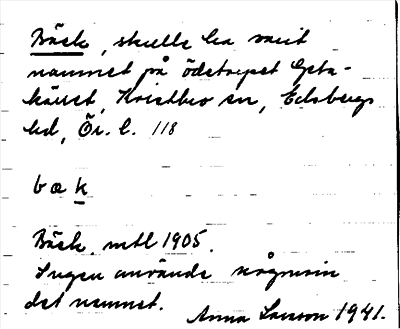 Bäck, skulle ha varit
namnet på ödetorpet Göta-
kärret, Kvistbro sn, Edsbergs
hd, Ör. l. 118
b æ k
Bäck mtl 1905.
Ingen använde någonsin
det namnet.
Anna Larsson 1941.